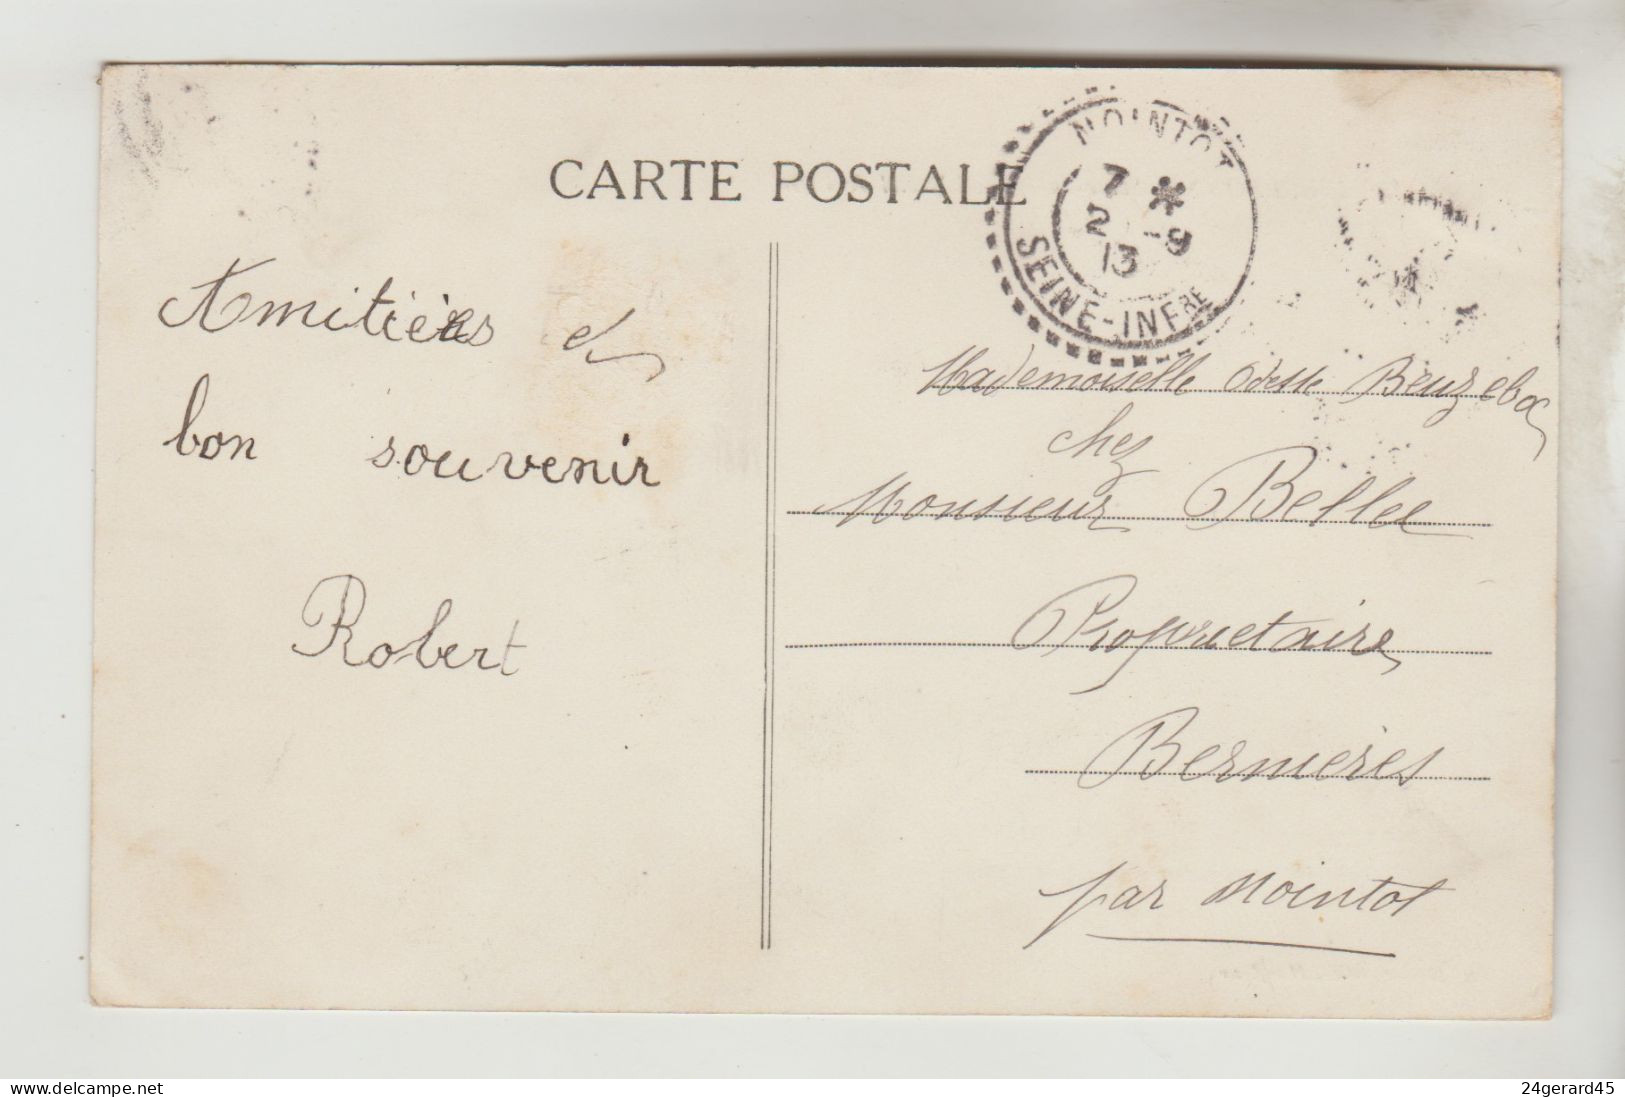 CARTE POSTALE
NOINTOT
7 *
2 -9
13
SEINE-INFRE
Amitiées et
bon souvenir
Robert
Mademoiselle Odette Beuzeboc
chez
Monsieur Bellee
Propriétaire
Bernières
par Nointot
www.delcampe.net
24gerard45